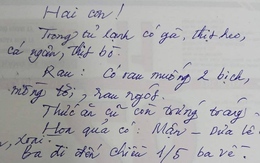 Hai con!
Trong tủ lạnh có gà, thịt heo,
cá ngừ, thịt bò.
Rau: Có rau muống 2 bịch,
mồng tơi, rau ngót.
Thức ăn cũ còn trứng tráng -
Hôm qua có: Mận - Dừa lê
, xoài.
Ba đi đến chiều 1/5 ba về.